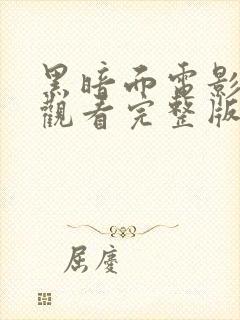 黑暗而電影
觀看完整版
屈慶